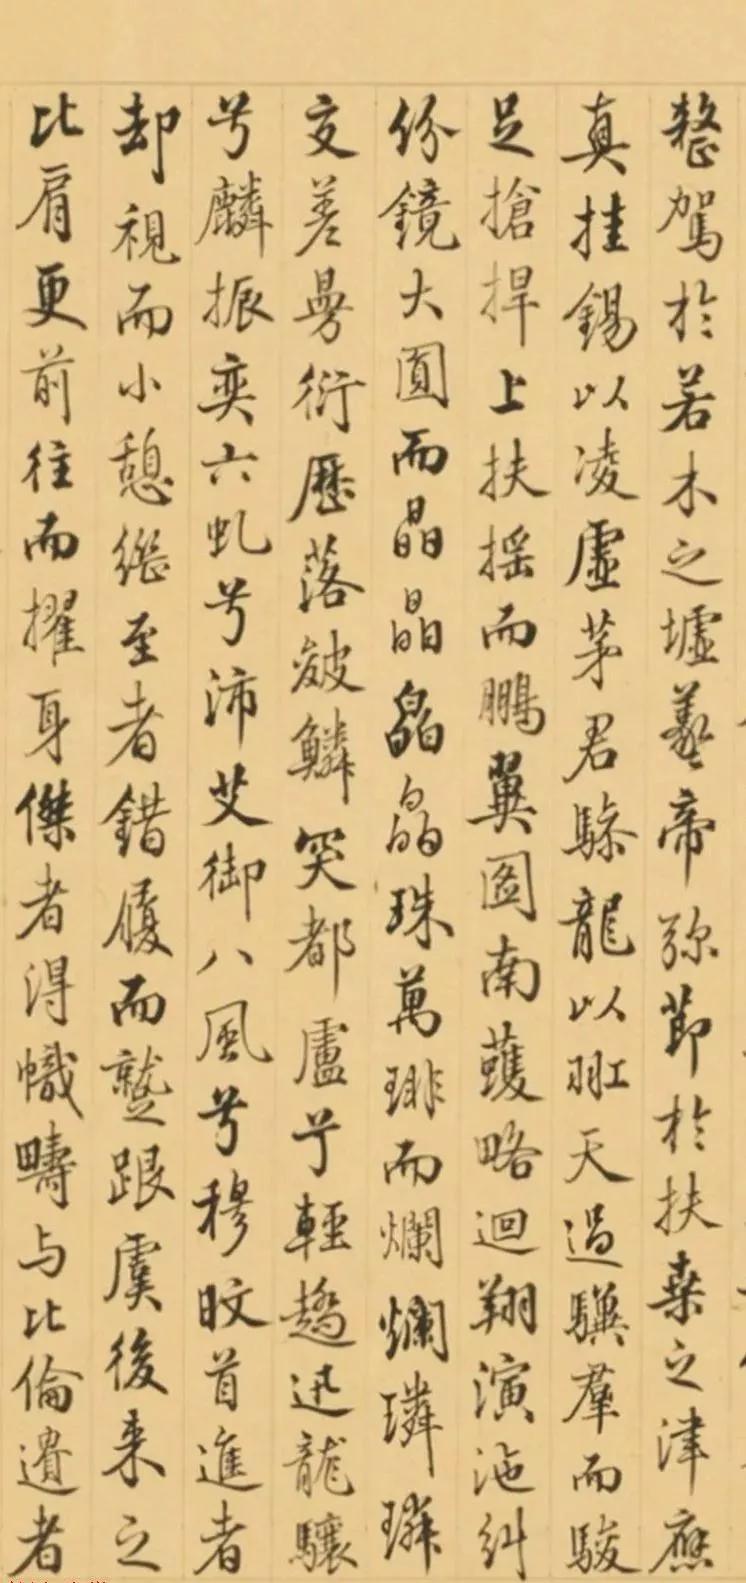 整駕於若木之墟羲帝弭節於扶桑之津應
真挂錫以凌虛茅君驂龍以羾天過驥羣而駿
足搶捍上扶摇而鵬翼圖南蠖略迴翔演迤糾
份鏡大圓而晶晶晶晶珠萬琲而爛爛璘璘
交差曼衍歷落皴鱗突都盧兮輕趫迅龍驤
兮麟振奕六虬兮沛艾御八風兮穆旼首進者
却視而小憩繼至者錯履而蹵跟虞後来之
比肩更前往而擢身傑者得幟疇与比倫遺者